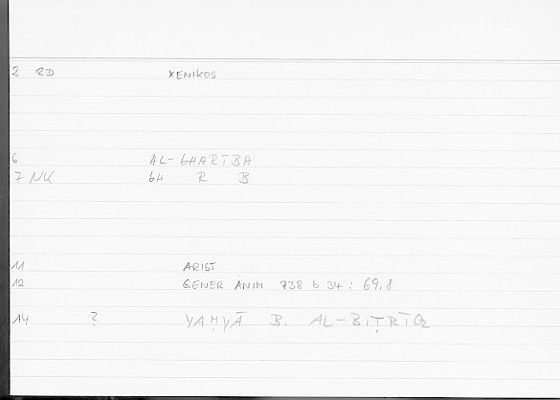 2 RD XENIKOS
6 AL-GHARĪBA
7 NK GH R B
11 ARIST
12 GENER ANIM 738 b 34 : 69,8
14 ? YAḤYĀ B. AL-BIṬRĪQ